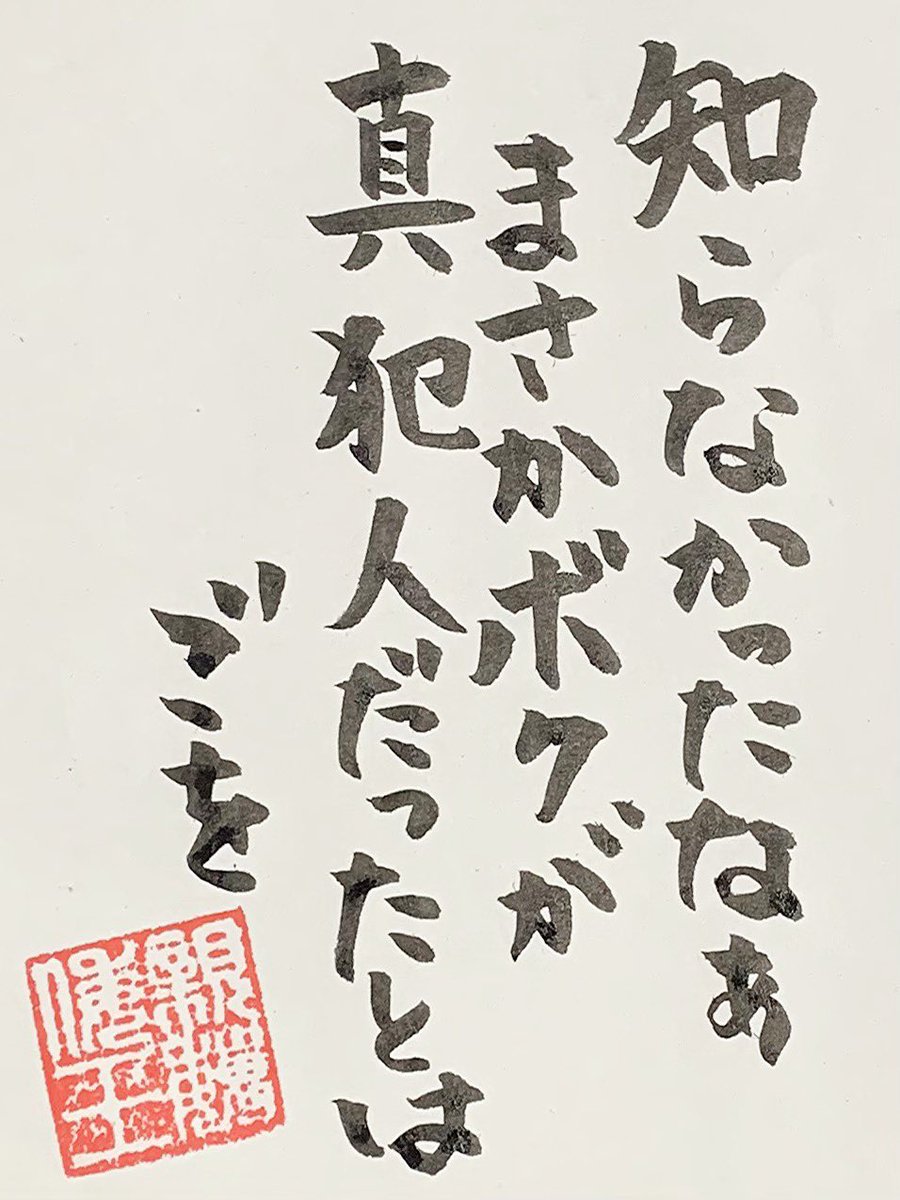 知らなかったなぁ
まさかボクが
真犯人だったとは